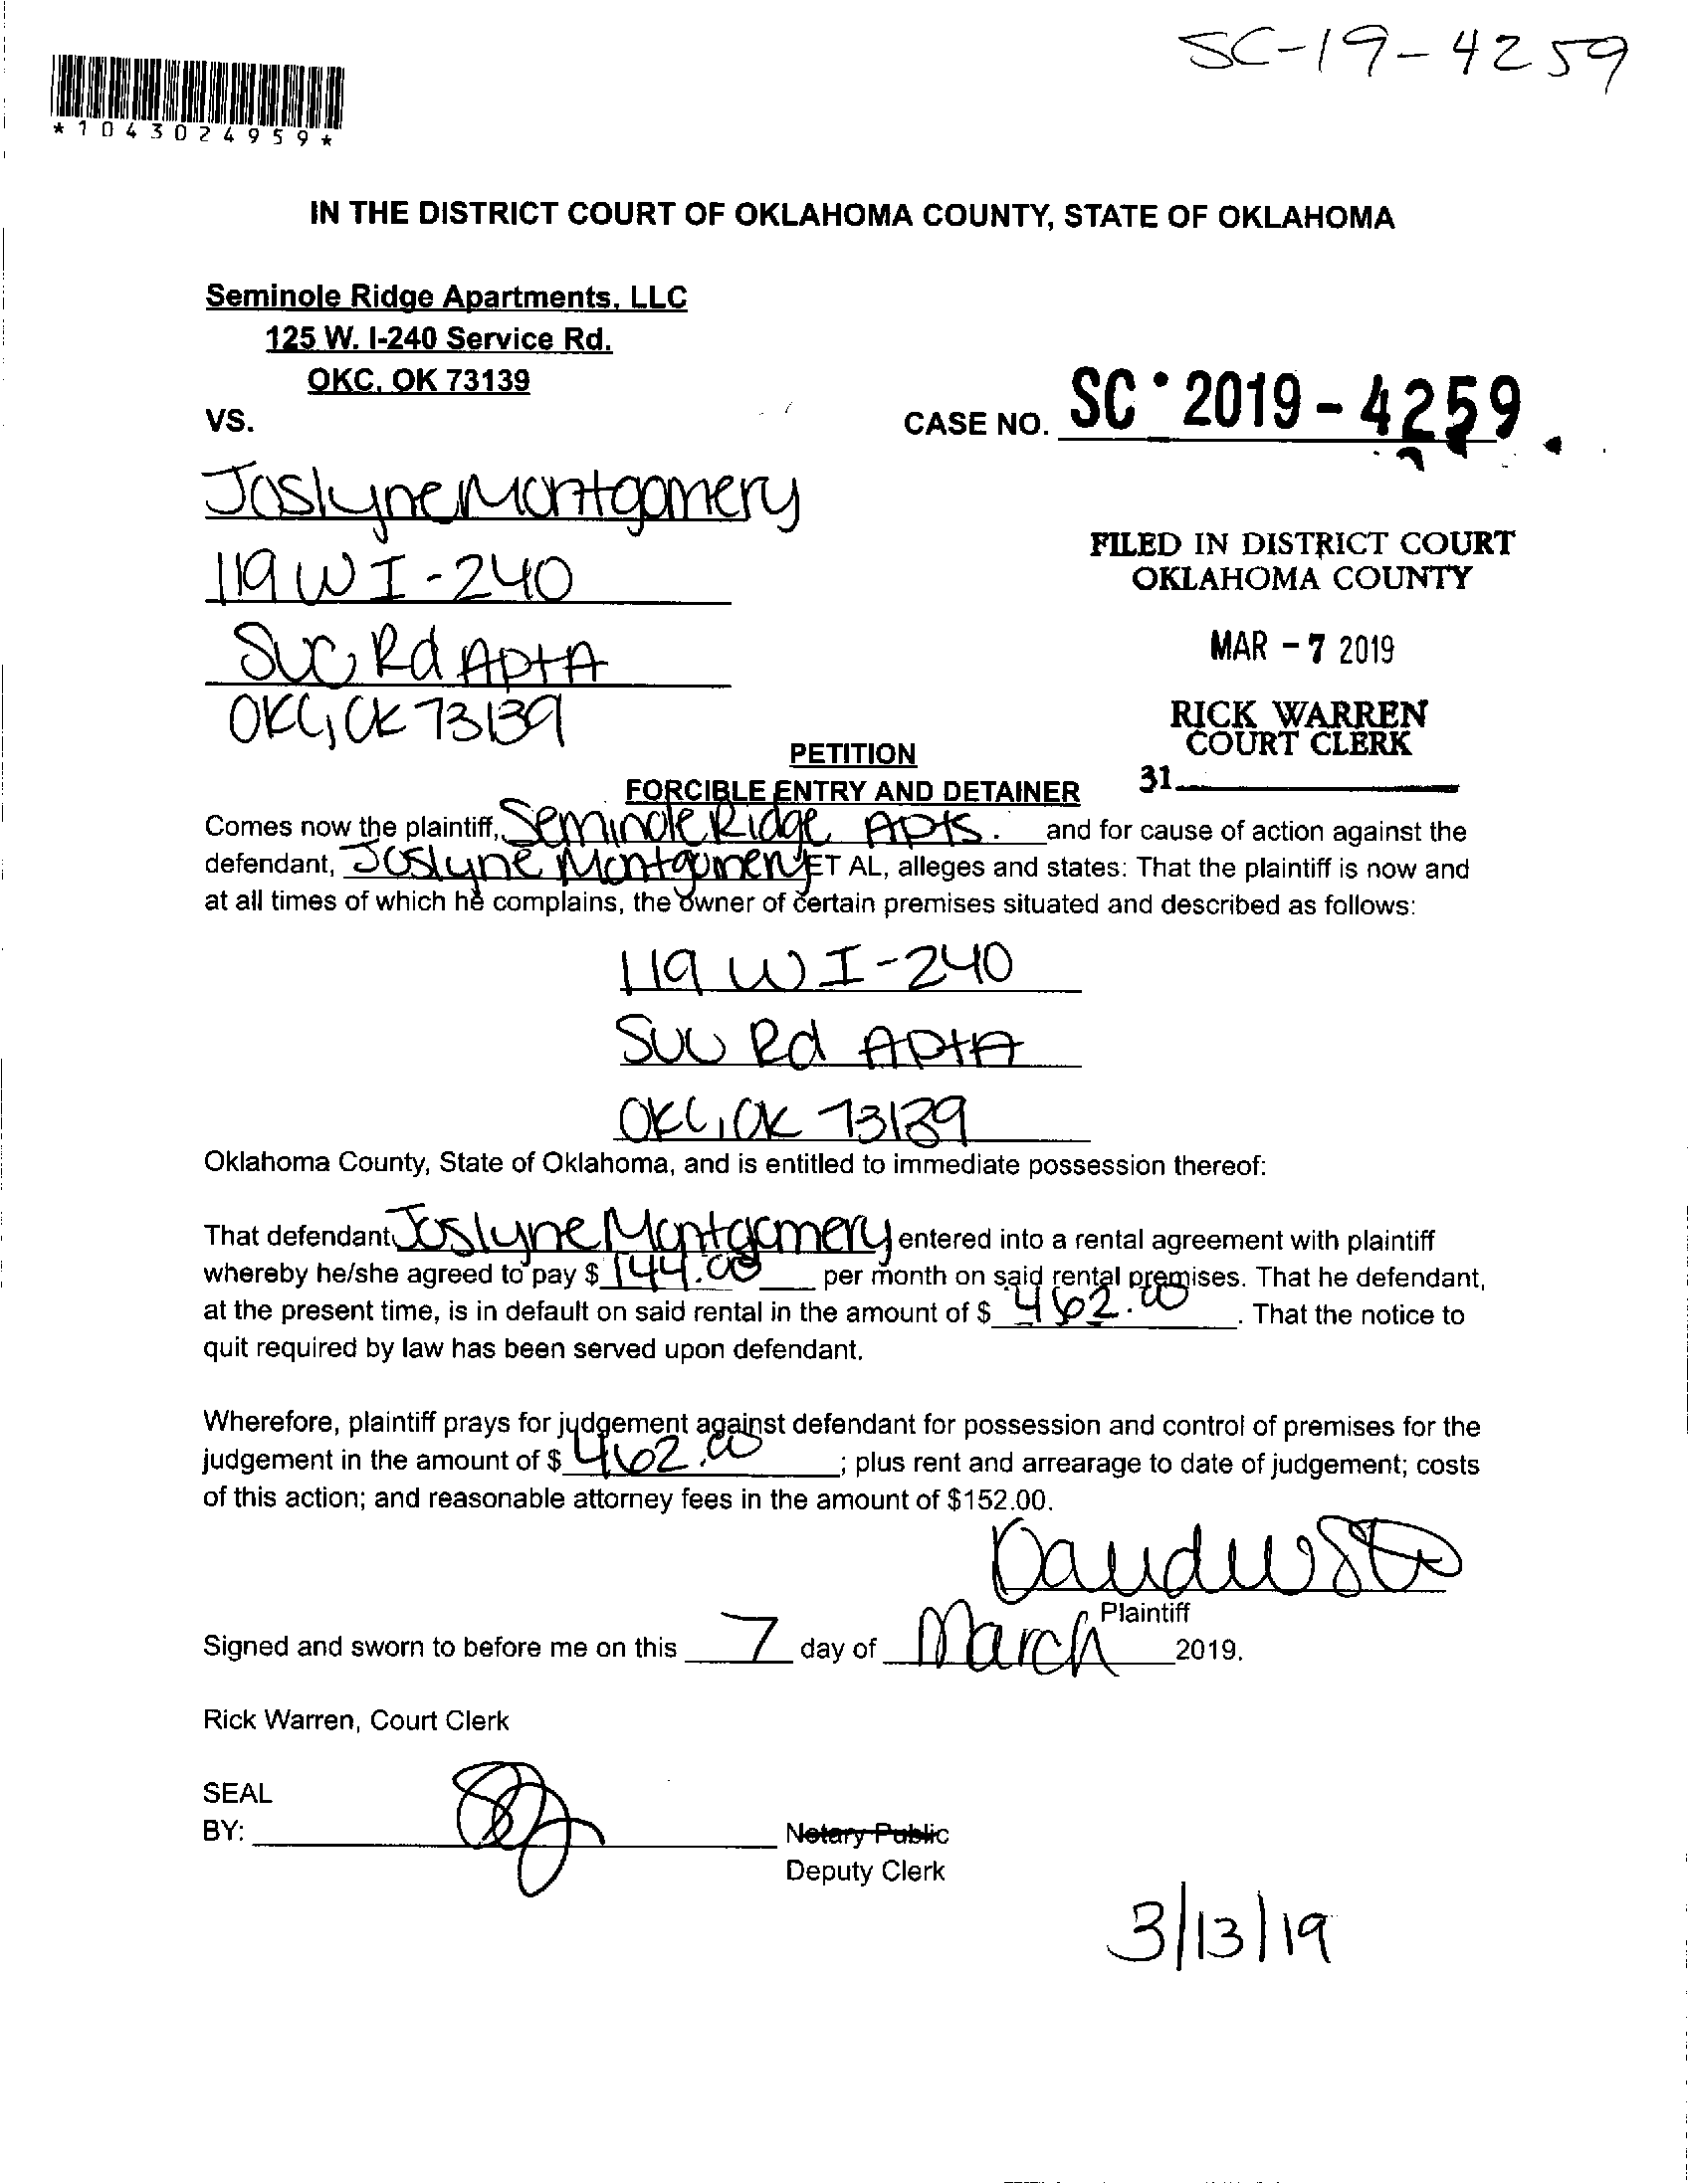 SC-19-4259
*1043024959*
IN THE DISTRICT COURT OF OKLAHOMA COUNTY, STATE OF OKLAHOMA
Seminole Ridge Apartments, LLC
125 W. I-240 Service Rd.
OKC, OK 73139
VS.
CASE NO. SC 2019-4259
Joslyne Montgomery
119 W I-240
Svc Rd Apt A
OKC, OK 73139
FILED IN DISTRICT COURT
OKLAHOMA COUNTY
MAR - 7 2019
RICK WARREN
COURT CLERK
31
PETITION
FORCIBLE ENTRY AND DETAINER
Comes now the plaintiff, Seminole Ridge Apts. and for cause of action against the
defendant, Joslyne Montgomery ET AL, alleges and states: That the plaintiff is now and
at all times of which he complains, the owner of certain premises situated and described as follows:
119 W I-240
Svc Rd Apt A
OKC, OK 73139
Oklahoma County, State of Oklahoma, and is entitled to immediate possession thereof:
That defendant Joslyne Montgomery entered into a rental agreement with plaintiff
whereby he/she agreed to pay $ 144.00 per month on said rental premises. That he defendant,
at the present time, is in default on said rental in the amount of $ 462.00. That the notice to
quit required by law has been served upon defendant.
Wherefore, plaintiff prays for judgement against defendant for possession and control of premises for the
judgement in the amount of $ 462.00; plus rent and arrearage to date of judgement; costs
of this action; and reasonable attorney fees in the amount of $152.00.
Plaintiff
Signed and sworn to before me on this 7 day of March 2019.
Rick Warren, Court Clerk
SEAL
BY:
Notary Public
Deputy Clerk
3/13/19